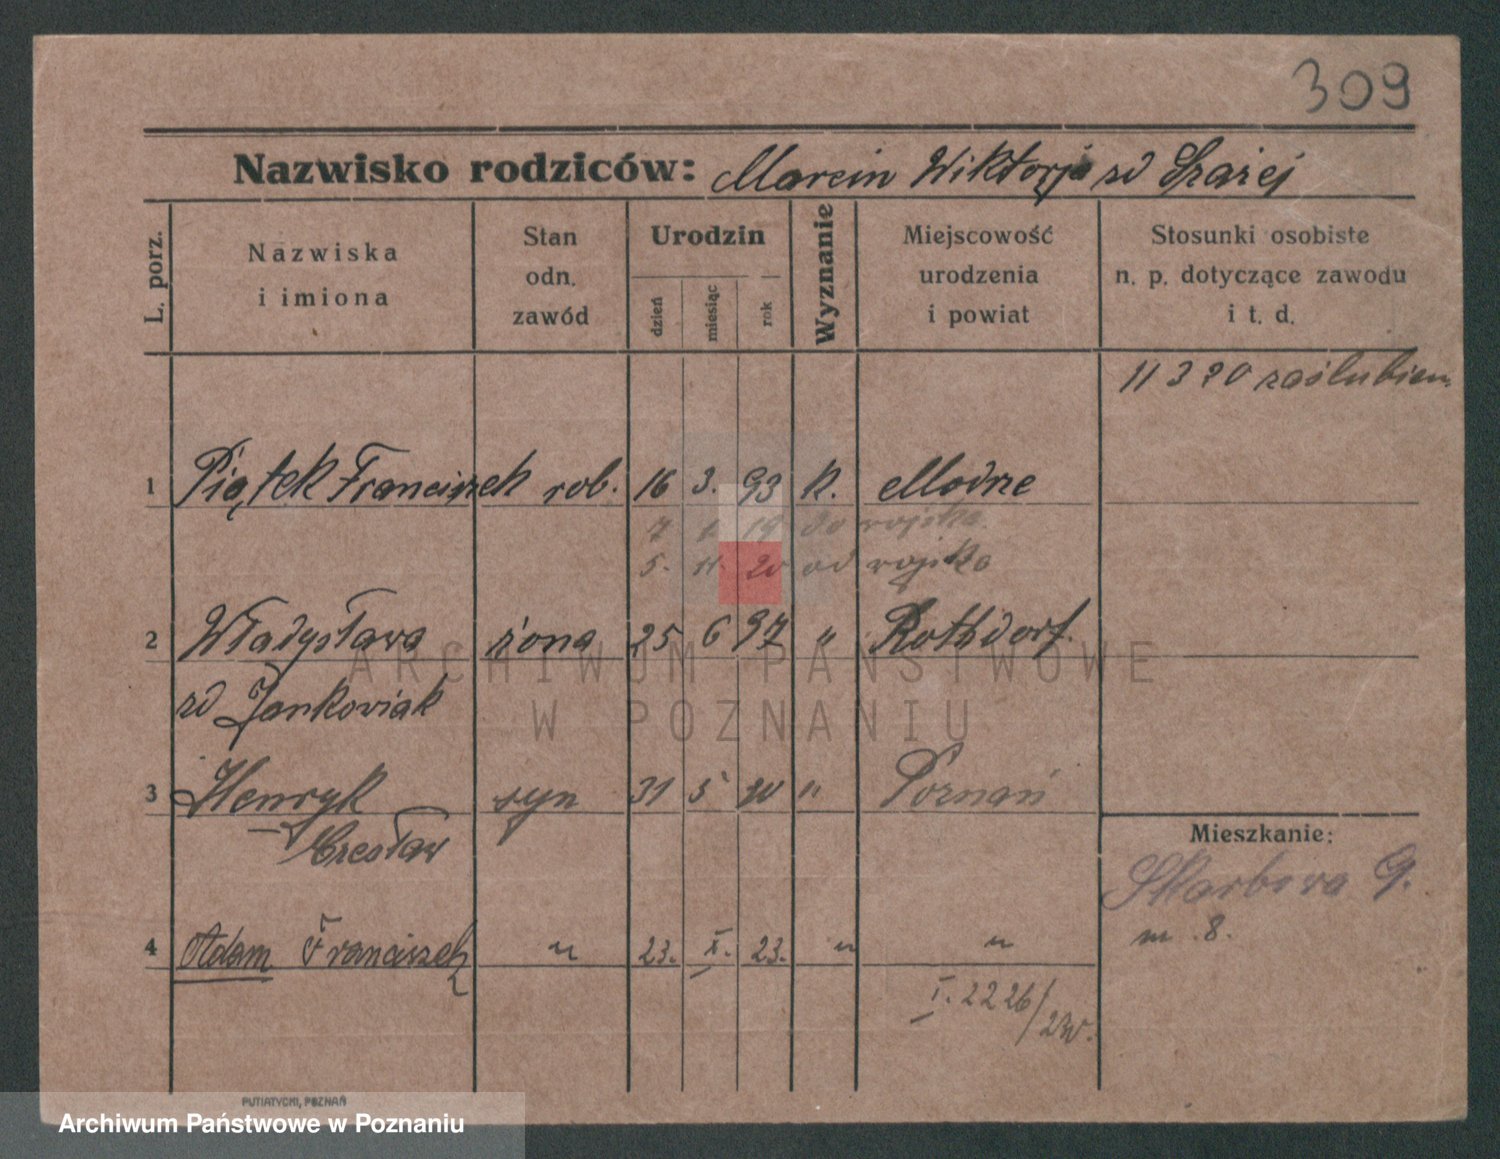 309
Nazwisko rodziców: Marcin Wiktorja zd
L. porz.
Nazwiska i imiona
Stan odn. zawód
Urodzin
dzień
miesiąc
rok
Wyznanie
Miejscowość urodzenia i powiat
Stosunki osobiste n. p. dotyczące zawodu i t. d.
11 3 20 zaślubien.
1 Piątek Franciszek rob. 16 3. 93 k. Modrze
7 19 do wojska
5. 11. 20 od wojska
2 Władysława żona 25 6 97 " Rothdorf.
zd Jankowiak
3 Henryk syn 31 5 20 " Poznań
Czesław
Mieszkanie:
Skarbowa 9.
m. 8.
4 Adam Franciszek " 23. I. 23. " "
I. 2226/23
PUTIATYCKI, POZNAŃ
ARCHIWUM PAŃSTWOWE
W POZNANIU
Archiwum Państwowe w Poznaniu